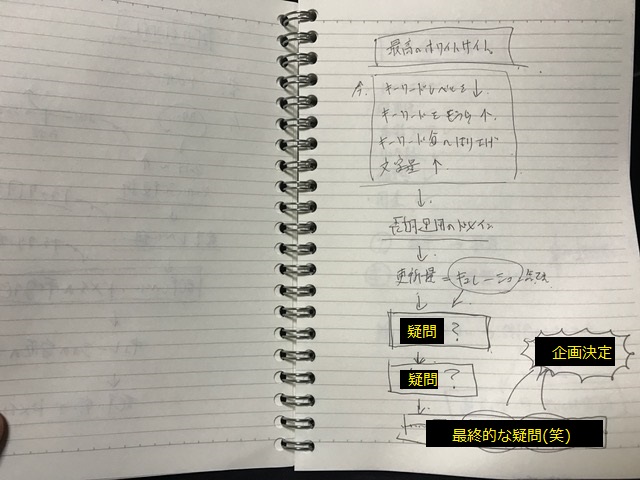 最高のホワイトサイト
今. キーワードレベルを↓.
キーワードをもうら↑.
キーワード毎のほり下げ
文字量 ↑
↓.
運用のドメイン
↓
更新量 キュレーション
↓
疑問 ?
↓
疑問 ?
↓
企画決定
最終的な疑問(笑)